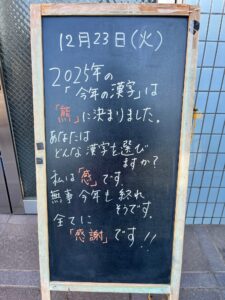 12月23日(火)
2025年の
「今年の漢字」は
「熊」に決まりました。
あなたは
どんな漢字を選び
ますか?
私は「感」です
無事今年も終れ
そうです。
全てに
「感謝」です!!